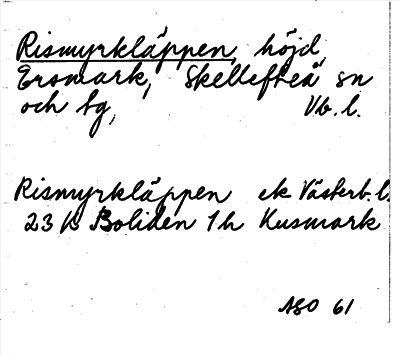 Rismyrkläppen, höjd,
Ersmark, Skellefteå sn
och tg, Vb. l.
Rismyrkläppen ek Västerb. l.
23 K Boliden 1h Kusmark
ASO 61